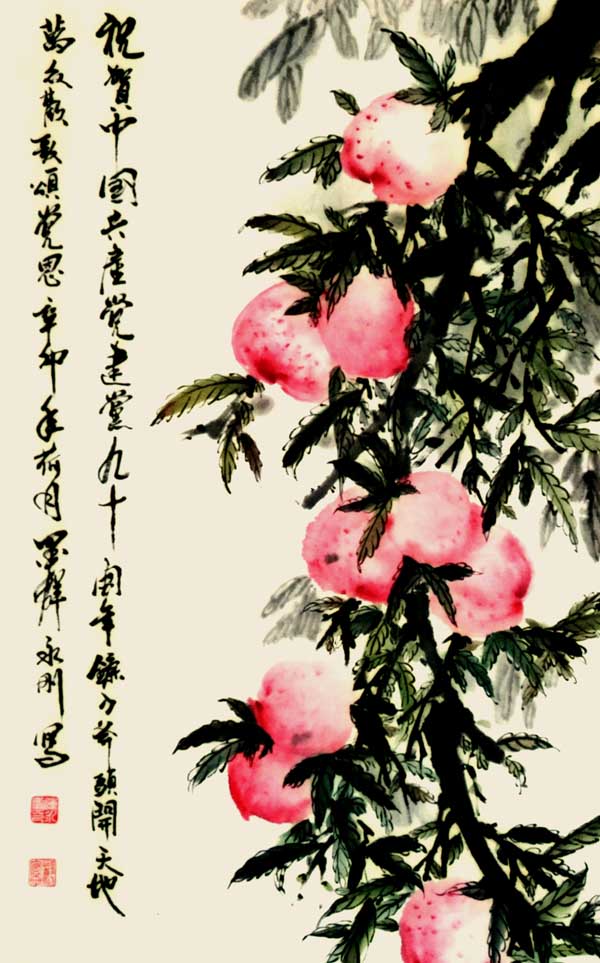 祝賀中國共產党建黨九十周年鐮刀斧頭開天地
萬众歡歌頌党恩辛卯年荷月墨永刚寫